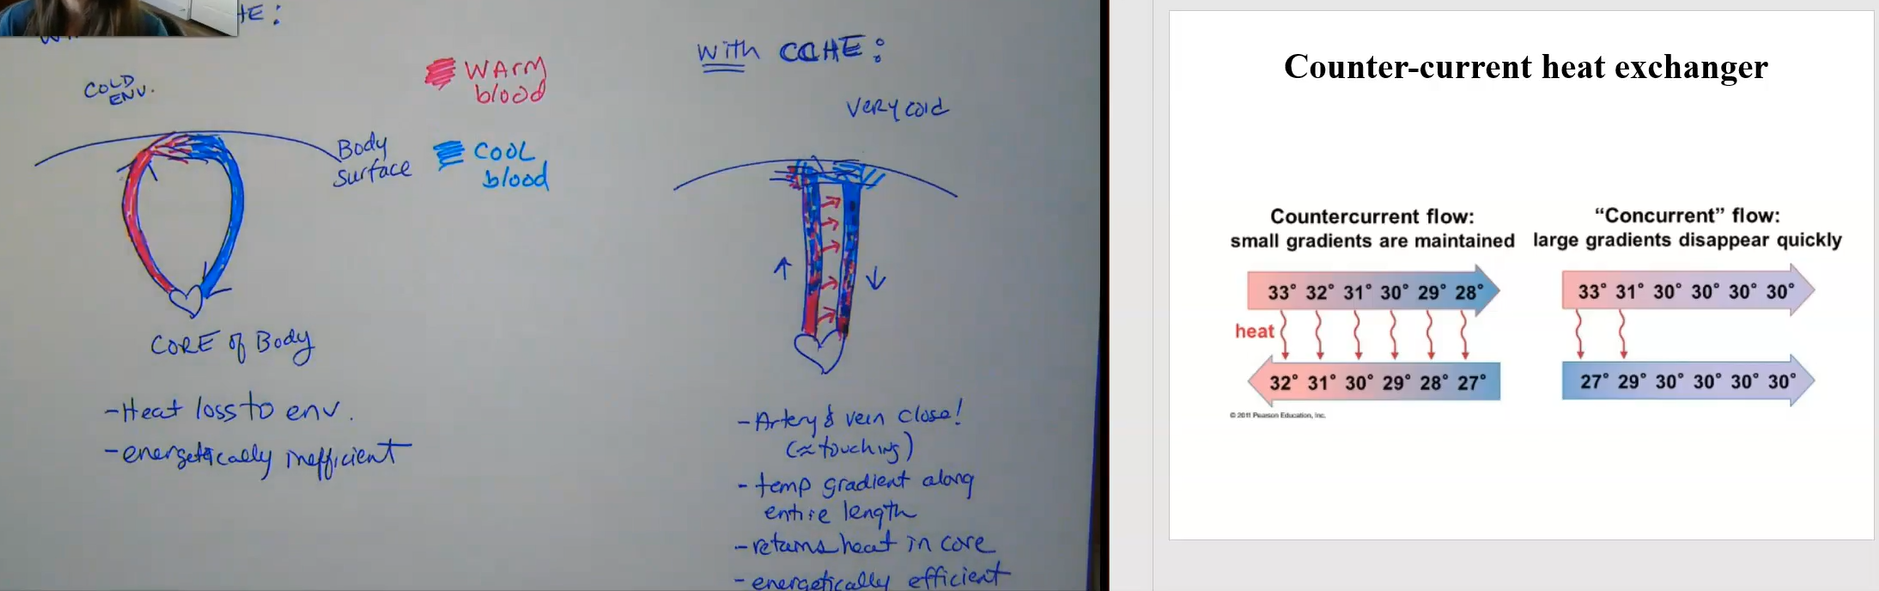 HE:
COLD
ENV.
Body
surface
WARM
blood
COOL
blood
CORE of Body
-Heat loss to env.
-energetically inefficient
With CCHE:
Very cold
-Artery & vein close!
(≈touching)
- temp gradient along
entire length
-retains heat in core
-energetically efficient
Counter-current heat exchanger
Countercurrent flow:
small gradients are maintained
33° 32° 31° 30° 29° 28°
heat
32° 31° 30° 29° 28° 27°
© 2011 Pearson Education, Inc.
“Concurrent” flow:
large gradients disappear quickly
33° 31° 30° 30° 30° 30°
27° 29° 30° 30° 30° 30°